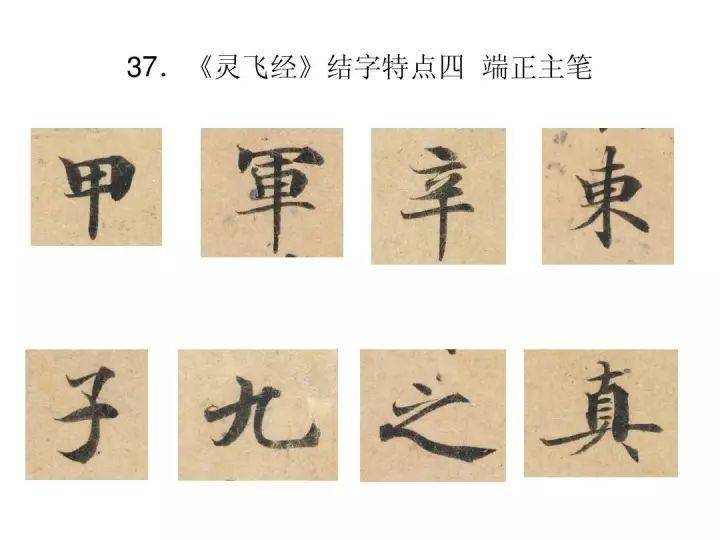 37. 《灵飞经》结字特点四 端正主笔
甲 軍 辛 東
子 九 之 真